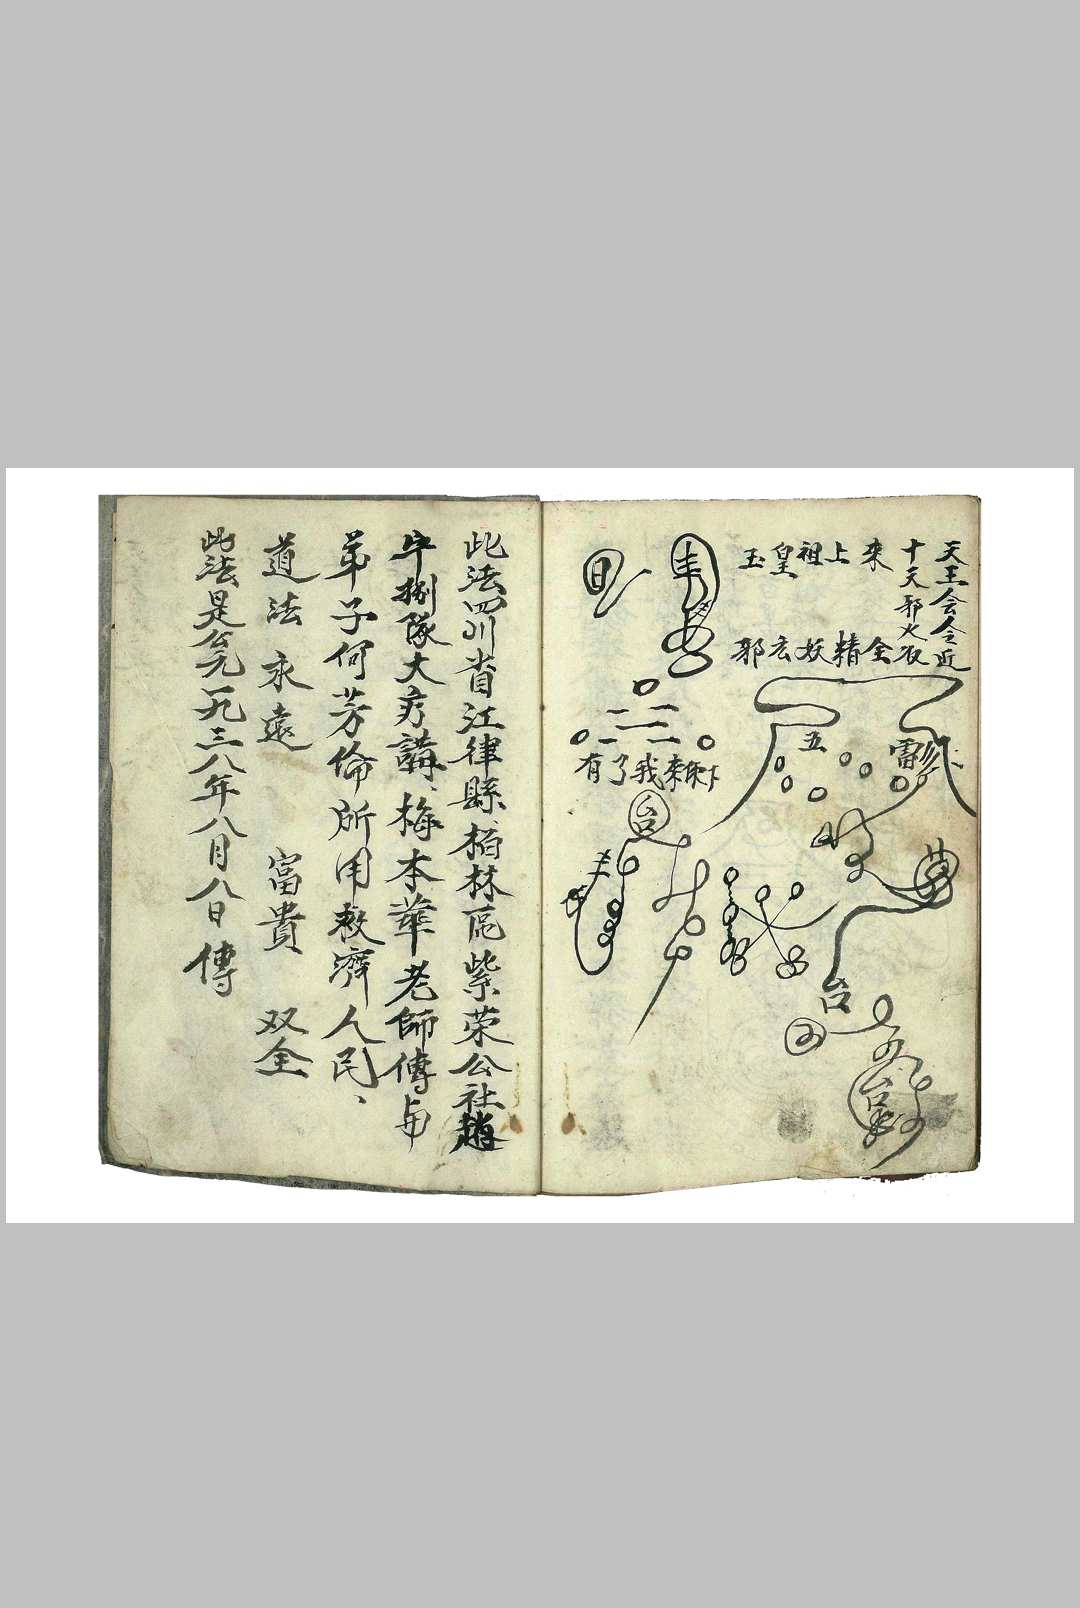 天王会令近
十天邪火收
來 全
上 精
祖 妖
皇 玄
玉 邪
五
雷
日
有了我來
台
台
台
此法四川省江律縣栢林區紫荣公社趙
牛捌隊大彷講、梅本華老師傳与
弟子何芳倫所用救濟人民、
道法永遠 富貴 双全
此法是公元一九三八年八月八日傳